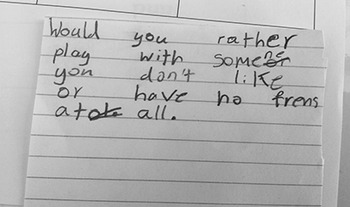 Would you rather
play with somene
you don't like
or have no frens
at all.